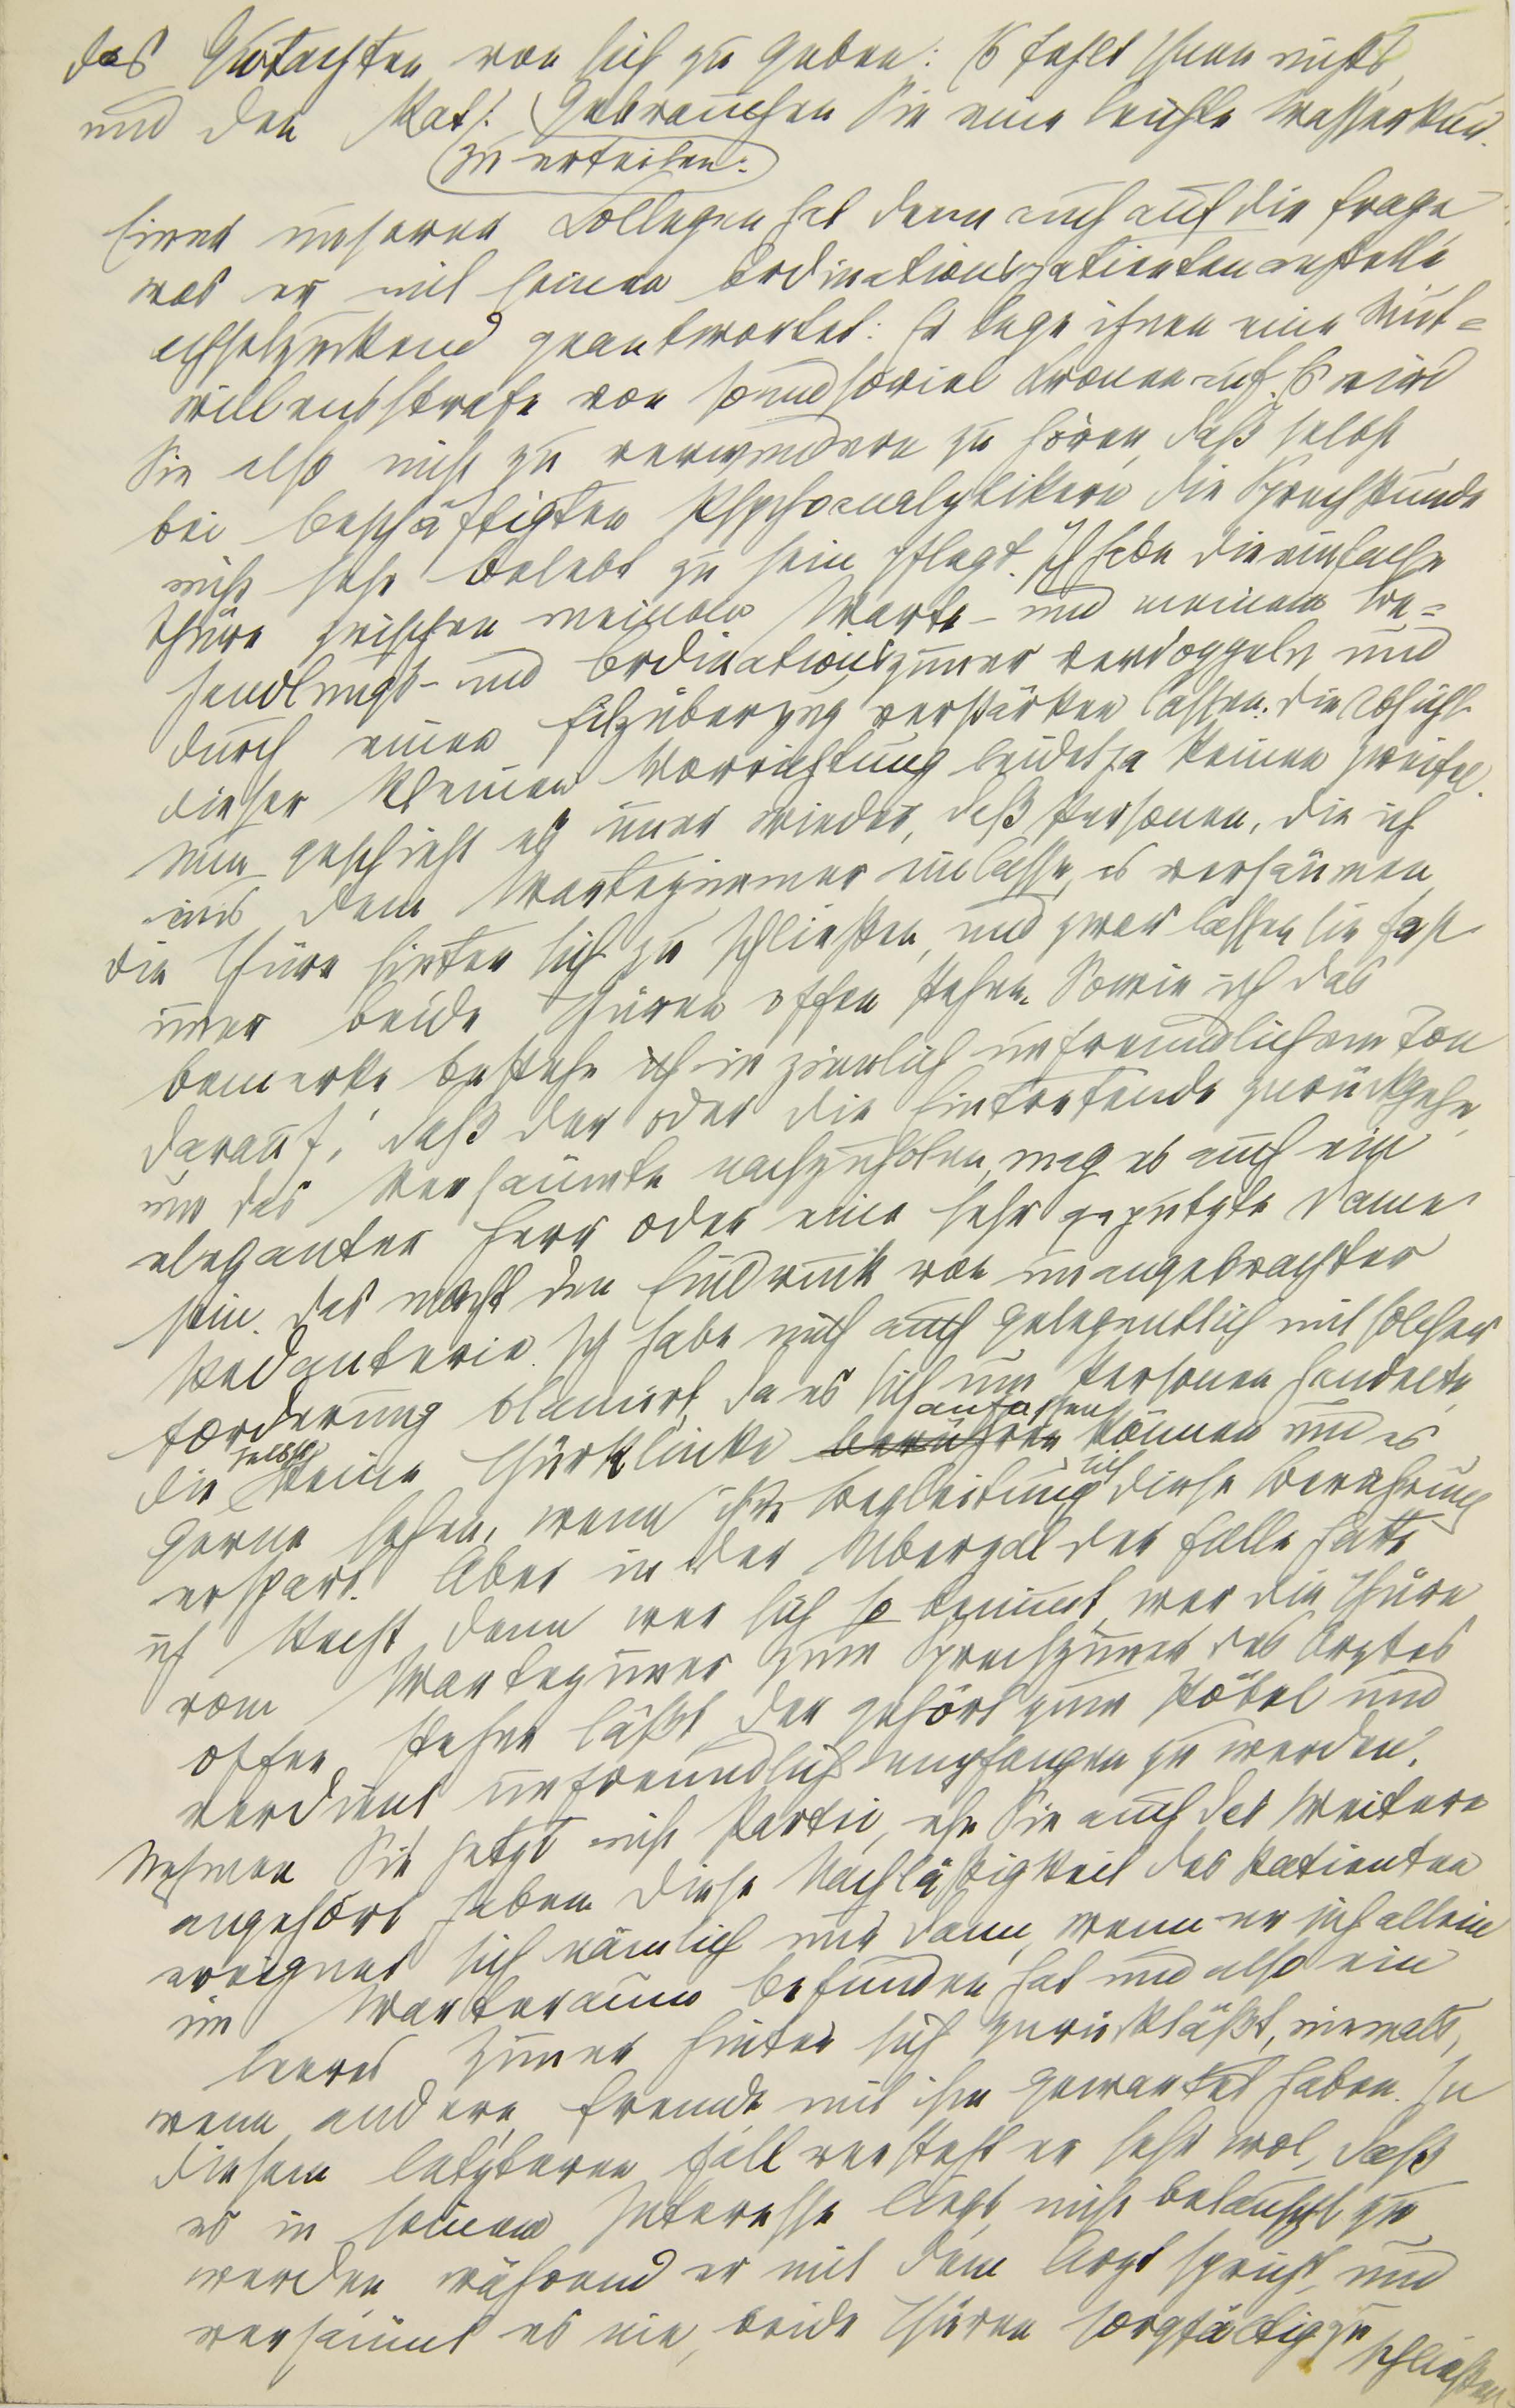 das Gutachten von sich zu geben: Es fehlt Ihnen nichts,
und den Rat: Gebrauchen Sie eine leichte Wasserkur.
zu erteilen:
Einer unserer Collegen hat denn auch auf die Frage,
was er mit seinen Ordinationspatienten anstelle
achselzuckend geantwortet: Er lege ihnen eine Mut=
willensstrafe von soundsoviel Kronen auf. Es wird
Sie also nicht zu verwundern zu hören, daß selbst
bei beschäftigten Psychoanalytikern die Sprechstunde
nicht sehr belebt zu sein pflegt. Ich habe die einfache
Thüre zwischen meinem Warte- und meinem Be=
handlungs- und Ordinationszimmer verdoppeln und
durch einen Filzüberzug verstärken lassen. Die Absicht
dieser kleinen Vorrichtung leidet ja keinen Zweifel.
Nun geschieht es immer wieder, daß Personen, die ich
aus dem Wartezimmer einlasse, es versäumen,
die Thüre hinter sich zu schließen, und zwar lassen sie fast
immer beide Thüren offen stehen. Sowie ich das
bemerke bestehe ich in ziemlich unfreundlichem Ton
darauf, daß der oder die Eintretende zurückgehe,
um das Versäumte nachzuholen, mag es auch ein
eleganter Herr oder eine sehr geputzte Dame
sein. Das macht den Eindruck von unangebrachter
Pedanterie. Ich habe mich auch gelegentlich mit solcher
Forderung blamirt, da es sich um Personen handelte,
anfassen
die selbst keine Thürklinke berühren können und es
gerne sehen, wenn ihre Begleitung ihnen diese Berührung
erspart. Aber in der Überzal der Fälle hatte
ich Recht, denn wer sich so benimmt, wer die Thüre
vom Wartezimmer zum Sprechzimmer des Arztes
offen stehen läßt, der gehört zum Pöbel und
verdient unfreundlich empfangen zu werden.
Nehmen Sie jetzt nicht Partei, ehe Sie auch das Weitere
angehört haben. Diese Nachlässigkeit des Patienten
ereignet sich nämlich nur dann, wenn er sich allein
im Warteraum befunden hat und also ein
leeres Zimmer hinter sich zurückläßt, niemals,
wenn andere, Fremde mit ihm gewartet haben. In
diesem letzteren Fall versteht er sehr wol, daß
es in seinem Interesse liegt, nicht belauscht zu
werden während er mit dem Arzt spricht, und
versäumt es nie, beide Thüren sorgfältig zu schließen.